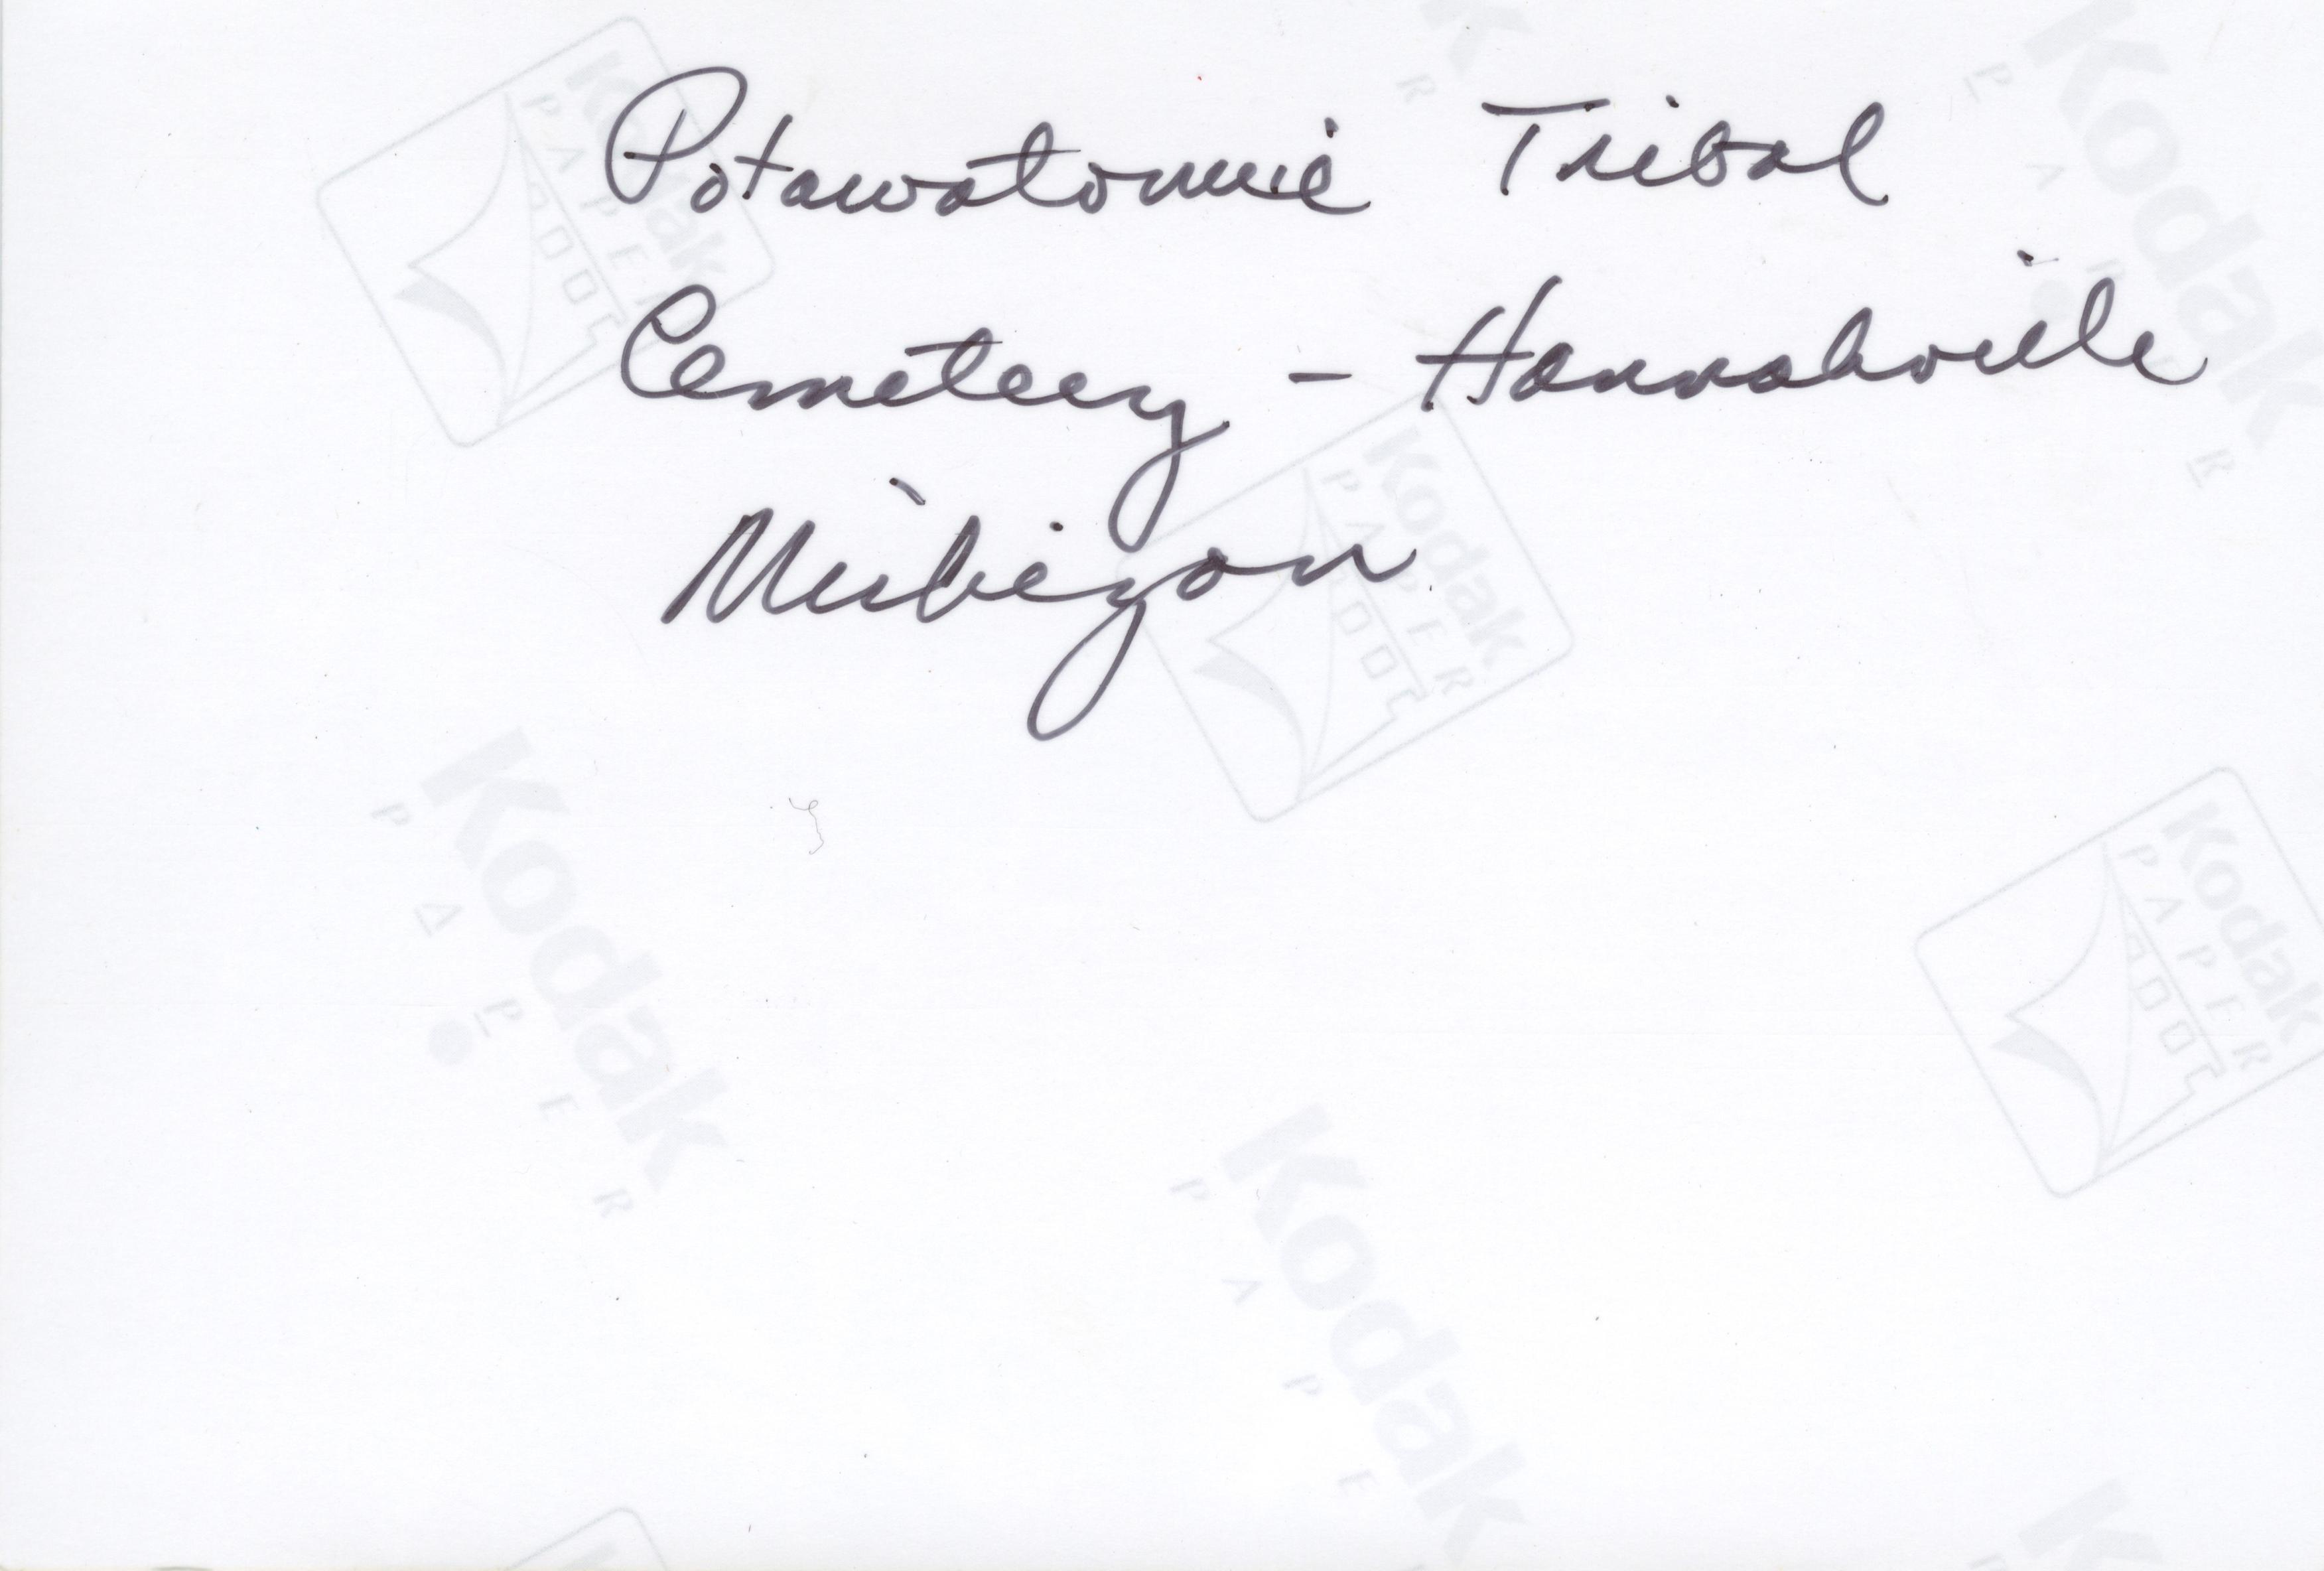 Potawatomie Tribal
Cemetery - Hannahville
Michigan
Kodak
PAPER
Kodak
PAPER
Kodak
PAPER
Kodak
PAPER
Kodak
PAPER
Kodak
PAPE